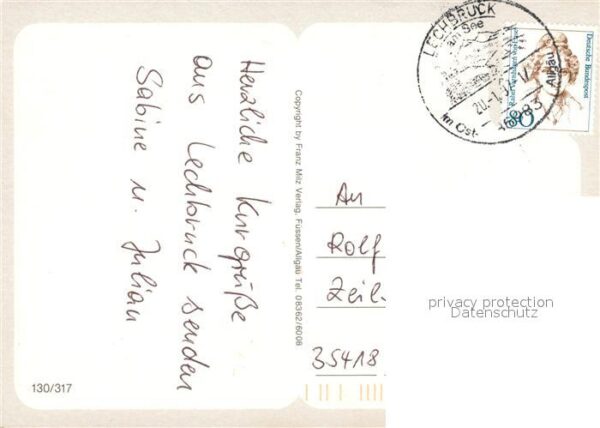 Herzliche Kurgrüße
aus Lechbruck senden
Sabine u. Julian
130/317
Copyright by Franz Milz Verlag, Füssen/Allgäu Tel. 08362/6008
LECHBRUCK
am See
im Ost-
Allgäu
Deutsche Bundespost
An
Rolf
Zeil-
35418
privacy protection
Datenschutz